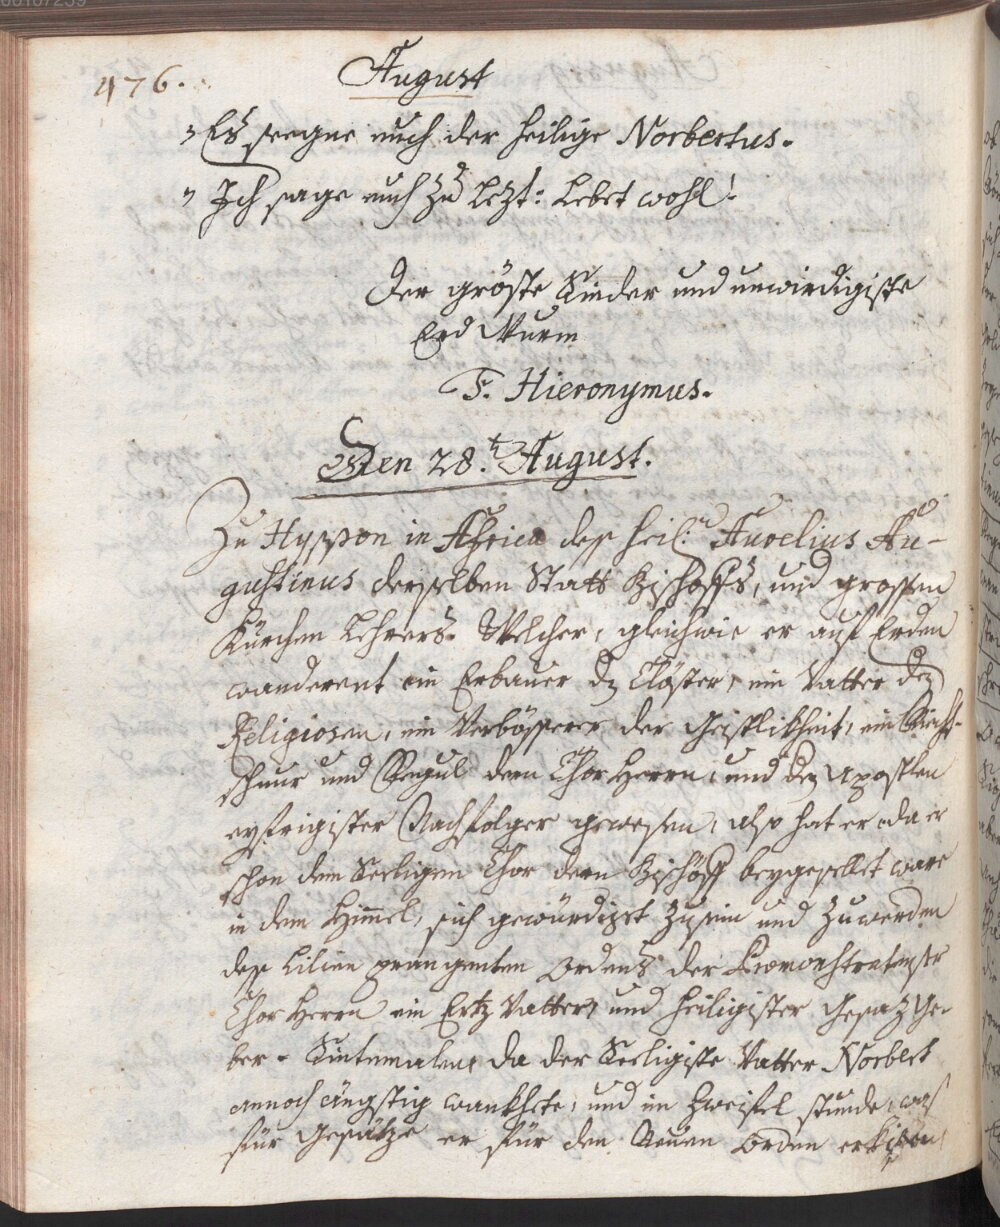 00107239
476.
August
" Es seegne euch der heilige Norbertus.
" Ich sage euch zu Lezt: Lebet wohl!
Der gröste Sünder und unwirdigiste
Erd Wurm
F. Hieronymus.
Den 28.t August.
Zu Hyppon in Africa deß heil: Aurelius Au-
gustinus derselben Statt Bischoffs, und grossen
Kürchen Lehrers. Welcher, gleichwie er auf Erden
wanderent ein Erbauer der Clöster, ein Vatter der
Religiosen, ein Verbösserer der Geistlikheit, ein Richt-
schnur und Regul deren Chor Herrn, und der Apostlen
eyfrigister Nachfolger gewesen, also hat er da er
schon dem Seeligen Chor deren Bischöff beygesellet ware
in dem Himmel, sich gewürdiget zu sein und zu werden
deß Lilien prangenten Ordens der Praemonstratenser
Chor Herrn ein Ertz Vatter, und heiligister Gesaz Ge-
ber. Sintemalen da der Seeligiste Vatter Norbert
annoch ängstig wankhete, und im Zweifel stunde, was
für Gesätze er für den Neuen Orden erkisen